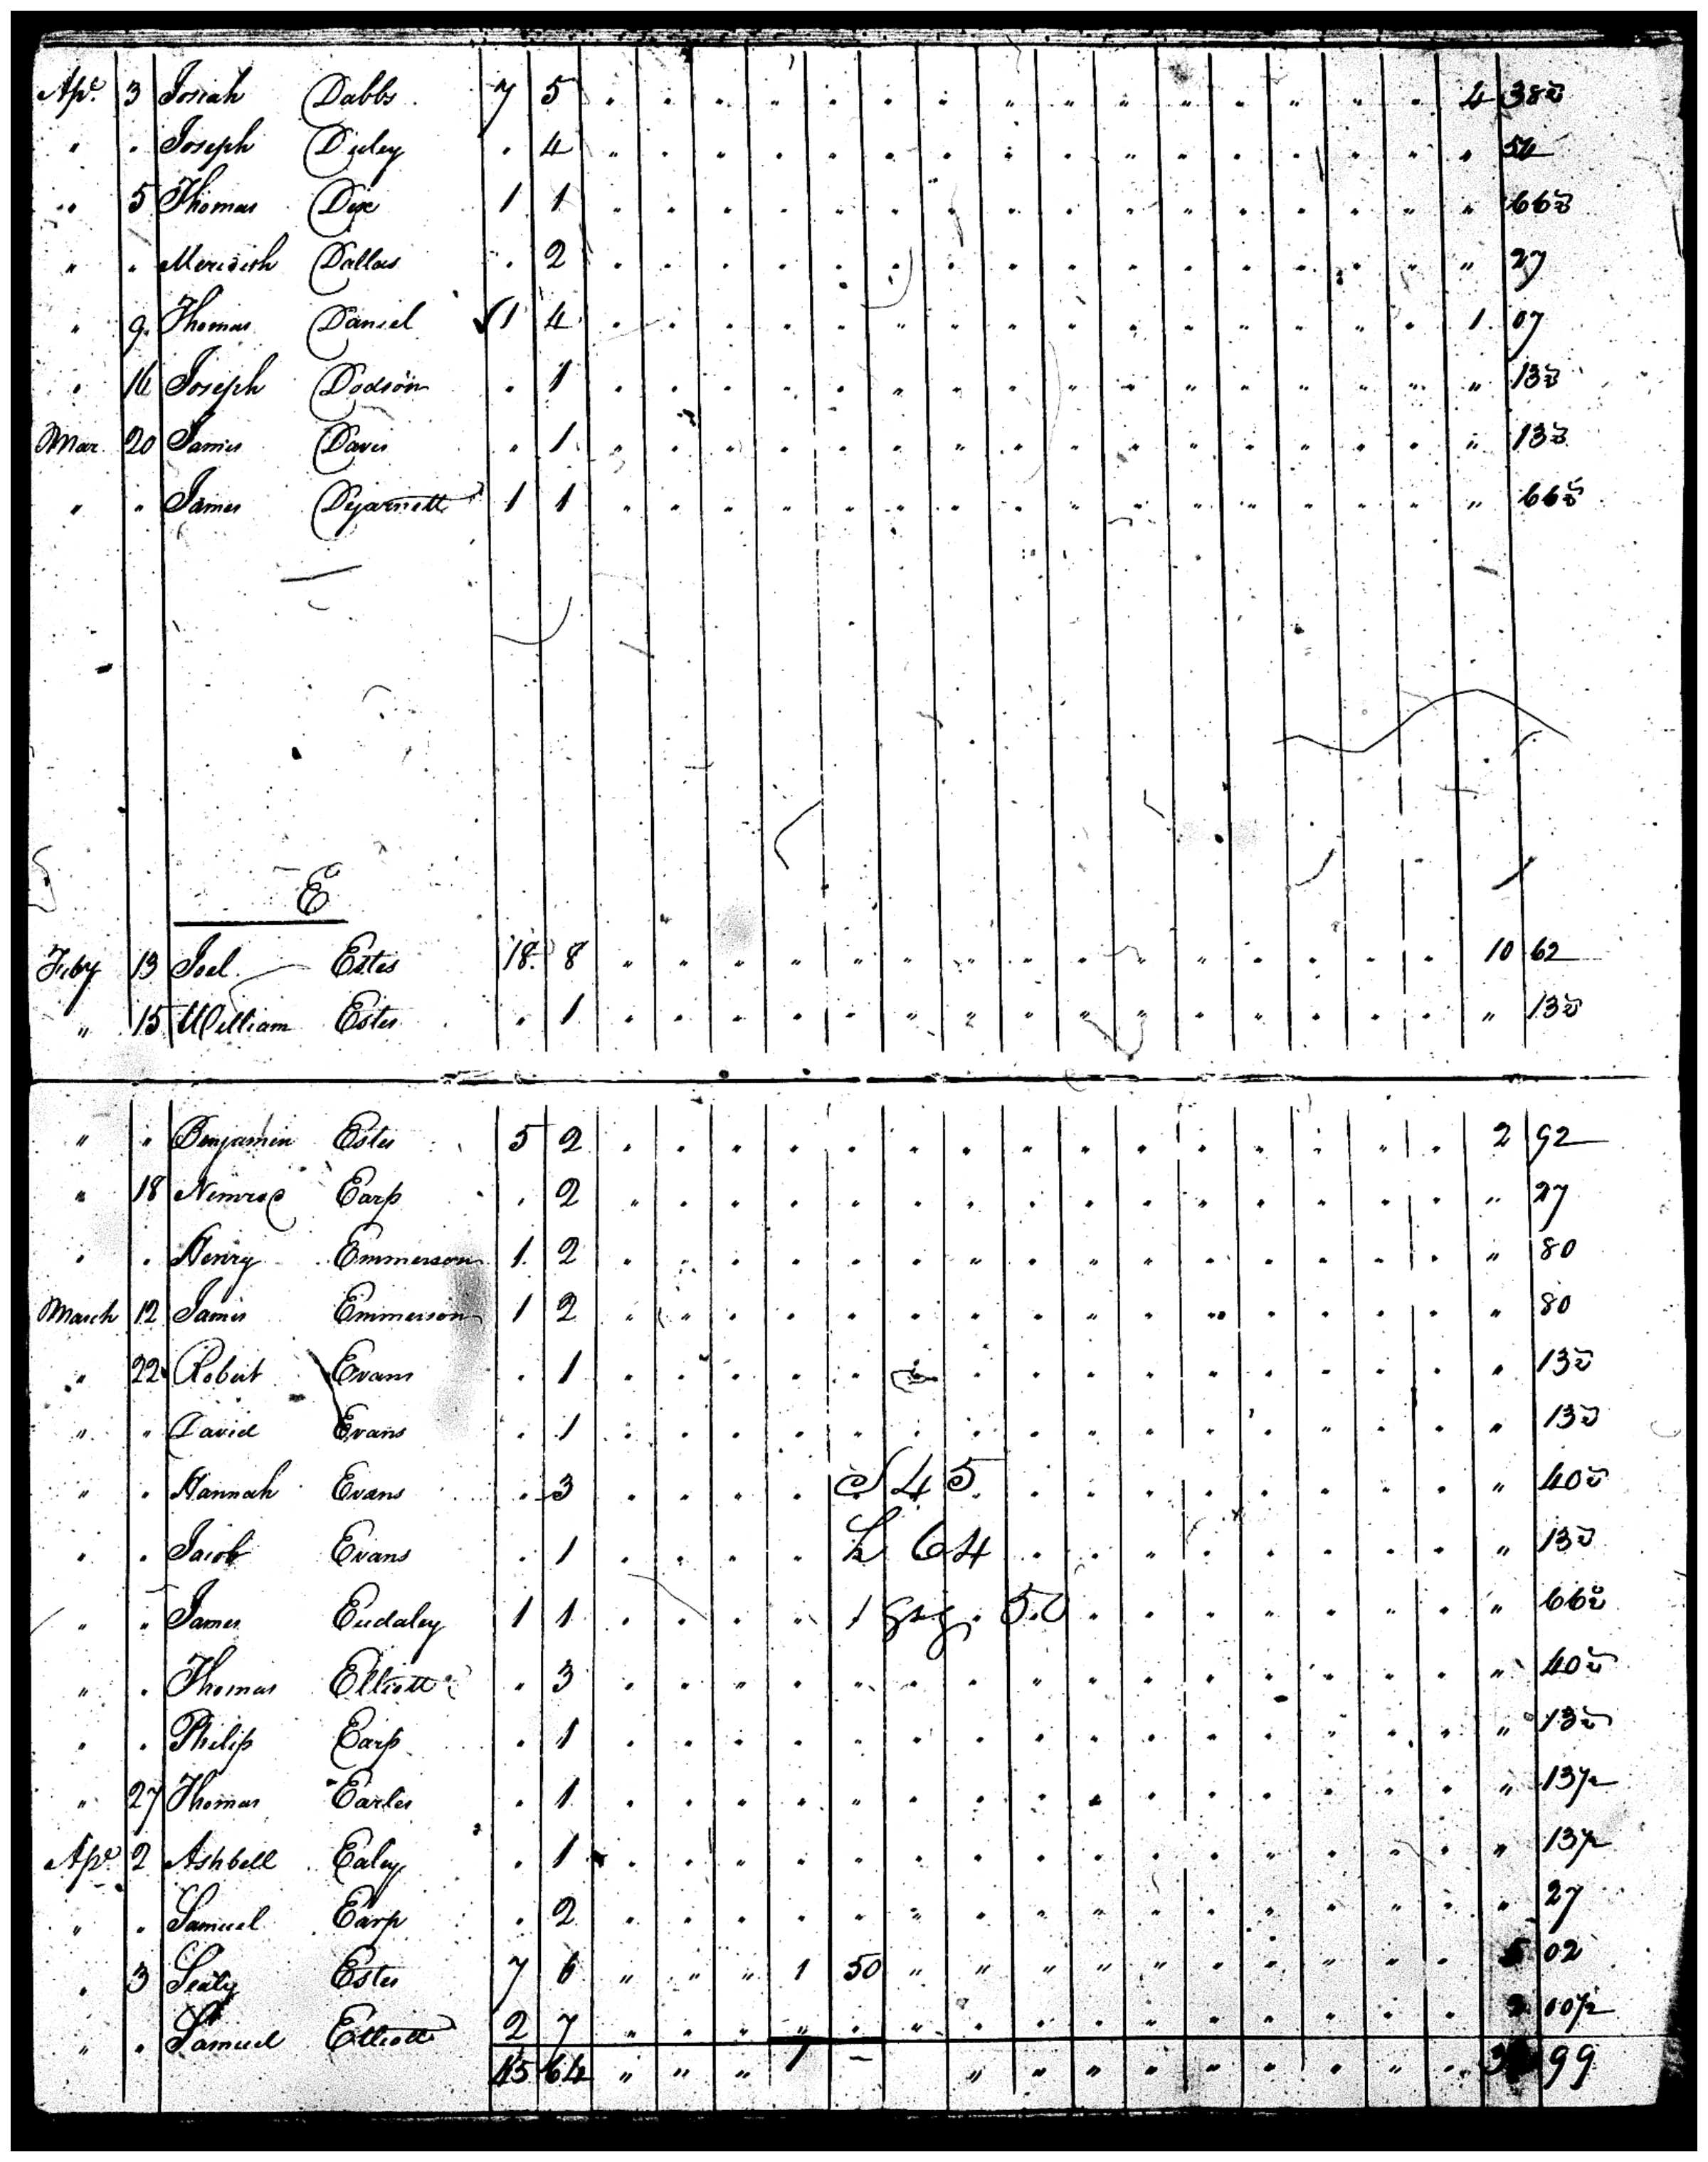 Apl. 3 Josiah Dabbs 7 5 " " " " " " " " " " " " " " " 4 38½
" " Joseph 4 " " " " " " " " " " " " " " " " 54
" 5 Thomas Dix 1 1 " " " " " " " " " " " " " " " " 66½
" " Meridith Dallas " 2 " " " " " " " " " " " " " " " " 27
" 9 Thomas Daniel 1 4 " " " " " " " " " " " " " " " 1 07
" 16 Joseph Dodson " 1 " " " " " " " " " " " " " " " " 13½
Mar. 20 James Davis " 1 " " " " " " " " " " " " " " " " 13½
" " James Dejarnett 1 1 " " " " " " " " " " " " " " " " 66½
E
Feby 13 Joel Estes 18 8 " " " " " " " " " " " " " " " 10 62
" 15 William Estes " 1 " " " " " " " " " " " " " " " " 13½
" " Benjamin Estes 5 2 " " " " " " " " " " " " " " " 2 92
" 18 Nimrod Earp " 2 " " " " " " " " " " " " " " " " 27
" " Henry Emmerson 1 2 " " " " " " " " " " " " " " " " 80
March 12 James Emmerson 1 2 " " " " " " " " " " " " " " " " 80
" 22 Robert Evans " 1 " " " " " " " " " " " " " " " " 13½
" " David Evans " 1 " " " " " " " " " " " " " " " " 13½
" " Hannah Evans " 3 " " " " S 45 " " " " " " " " " 40½
" " Jacob Evans " 1 " " " " h 64 " " " " " " " " " 13½
" " James Eudaley 1 1 " " " " 1 gig. 50 " " " " " " " " 66½
" " Thomas Elliott " 3 " " " " " " " " " " " " " " " " 40½
" " Philip Earp " 1 " " " " " " " " " " " " " " " " 13½
" 27 Thomas Earles " 1 " " " " " " " " " " " " " " " " 13½
Apl. 2 Ashbell Ealey " 1 " " " " " " " " " " " " " " " " 13½
" " Samuel Earp " 2 " " " " " " " " " " " " " " " " 27
" 3 Estes 7 6 " " " 1 50 " " " " " " " " " " 5 02
" " Samuel Elliott 2 7 " " " " " " " " " " " " " " " 2 00½
45 64 " " " 1 " " " " " " " " " 99